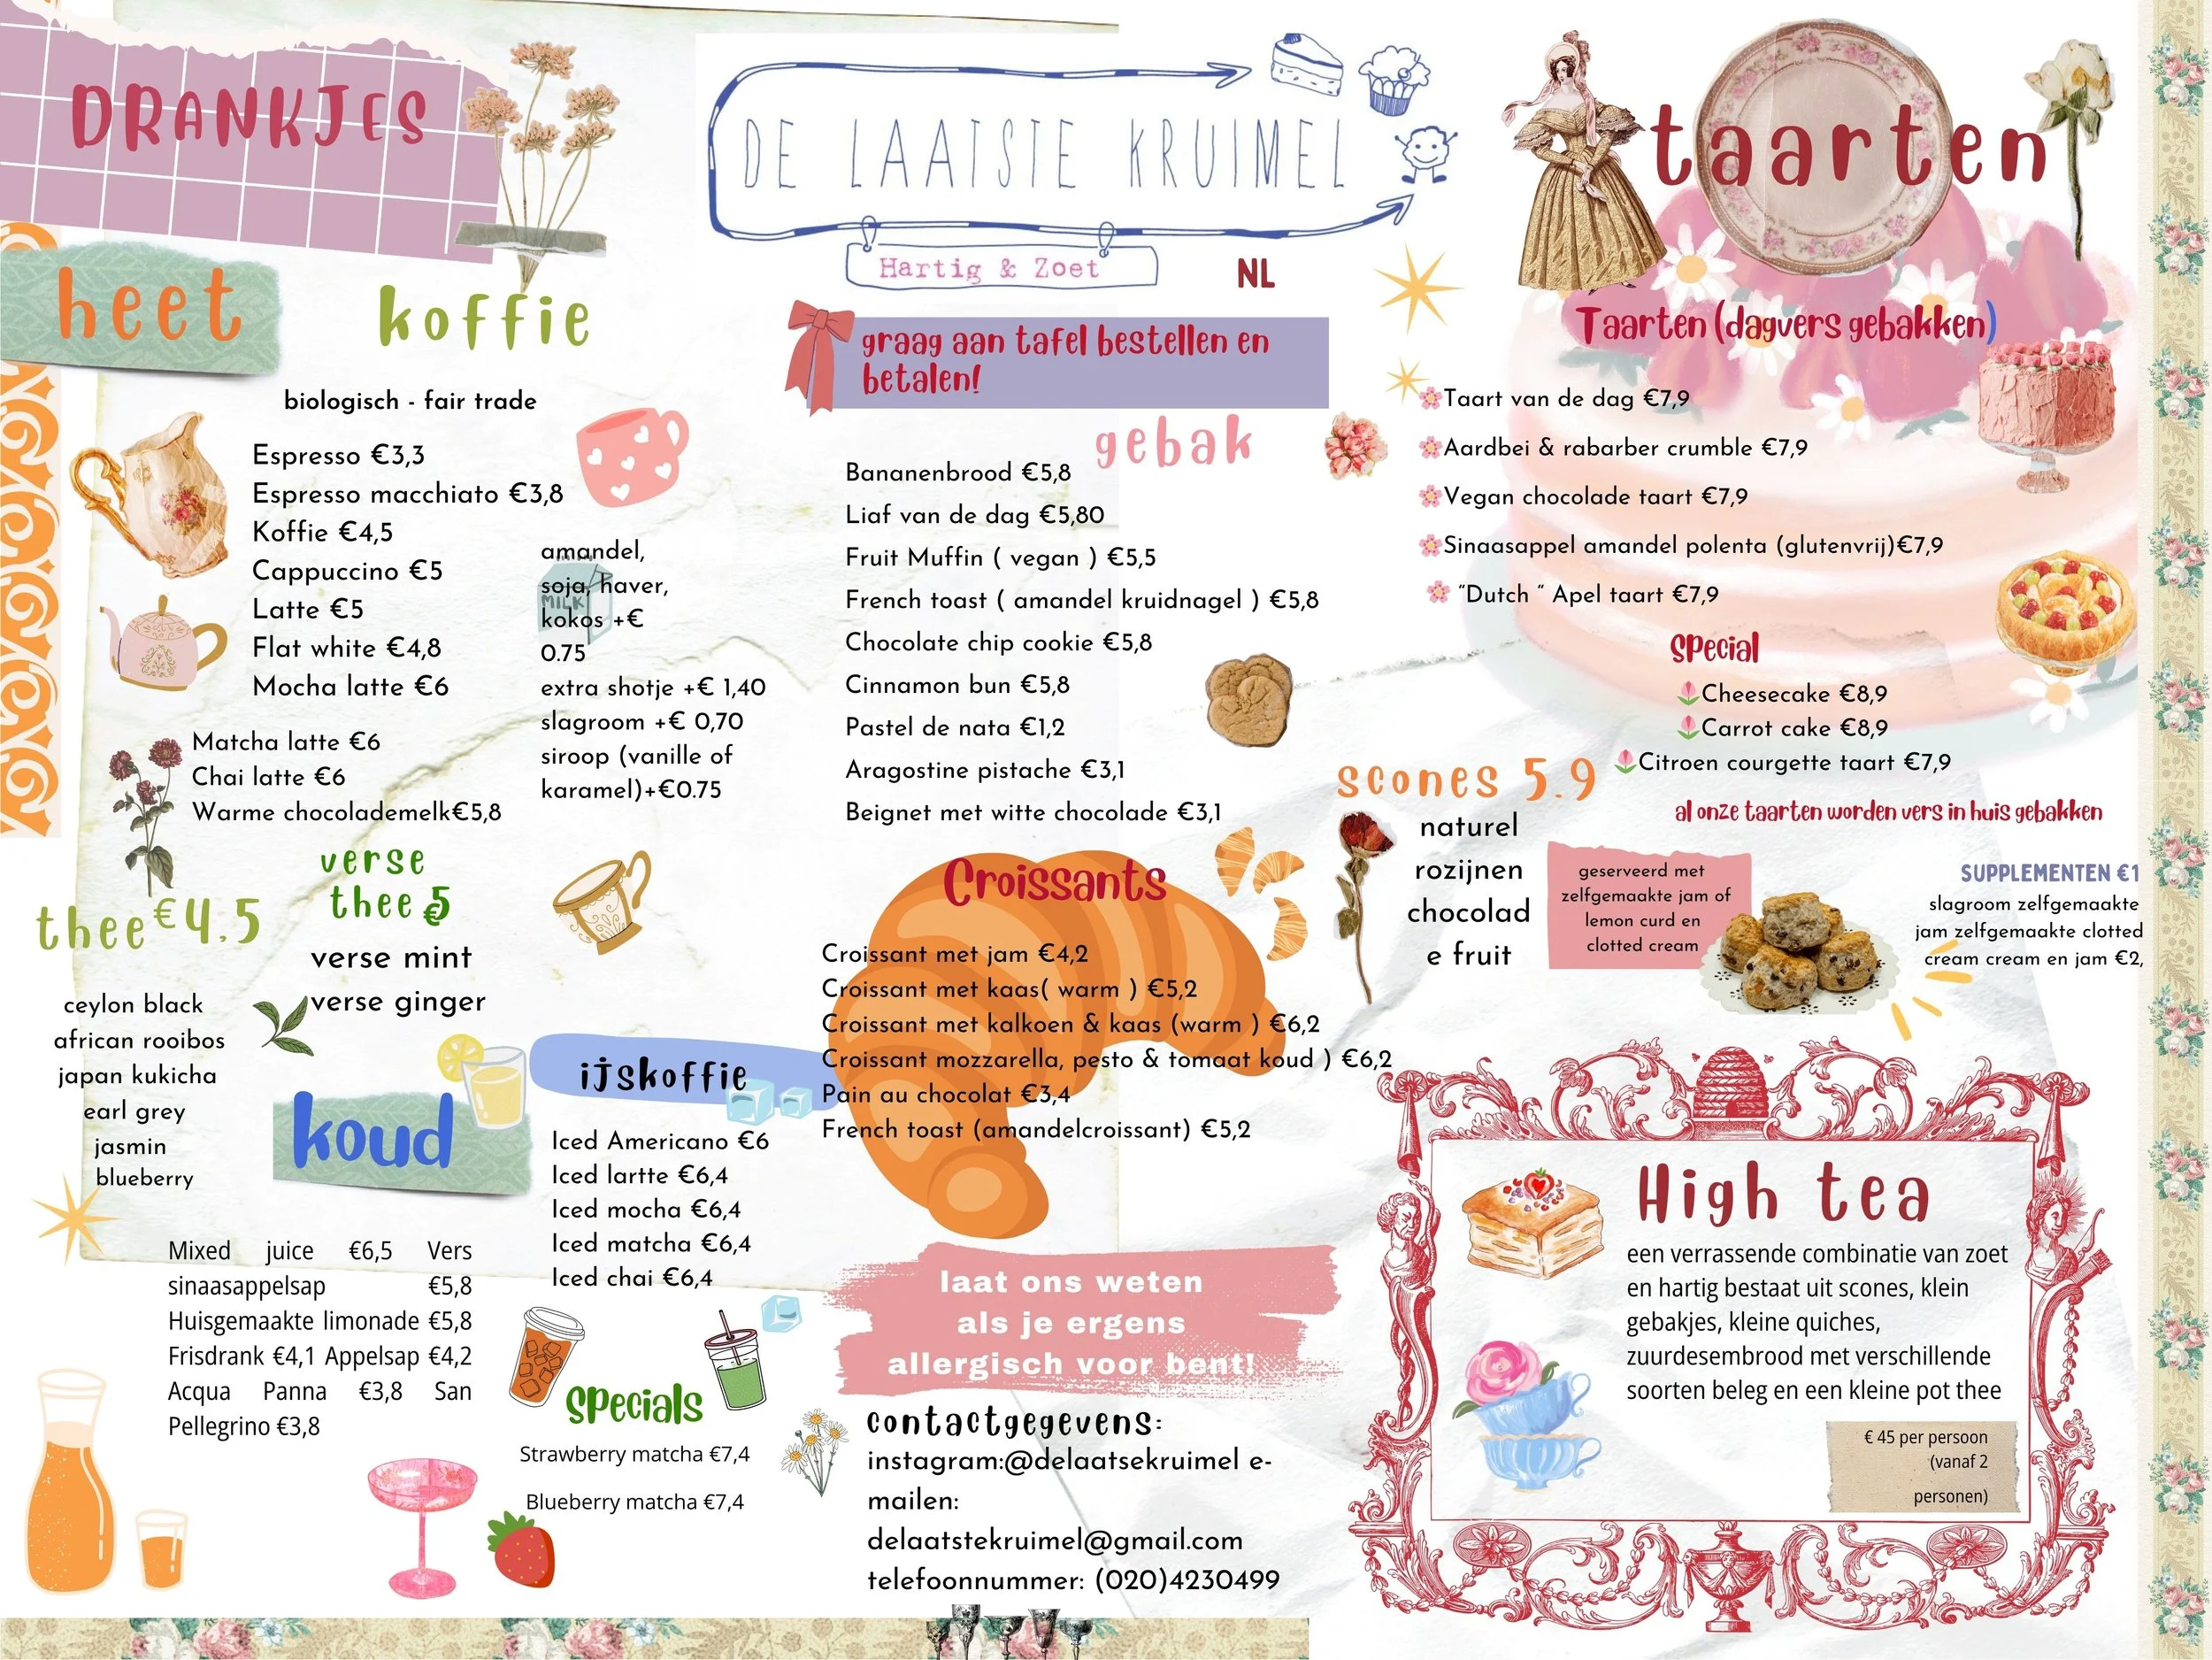 DRANKJES
heet
koffie
biologisch - fair trade
Espresso €3,3
Espresso macchiato €3,8
Koffie €4,5
Cappuccino €5
Latte €5
Flat white €4,8
Mocha latte €6
amandel,
soja, haver,
kokos +€
0.75
extra shotje +€ 1,40
slagroom +€ 0,70
siroop (vanille of
karamel)+€0.75
MILK
Matcha latte €6
Chai latte €6
Warme chocolademelk€5,8
thee €4.5
ceylon black
african rooibos
japan kukicha
earl grey
jasmin
blueberry
verse
thee 5
verse mint
verse ginger
koud
Mixed juice €6,5 Vers
sinaasappelsap €5,8
Huisgemaakte limonade €5,8
Frisdrank €4,1 Appelsap €4,2
Acqua Panna €3,8 San
Pellegrino €3,8
ijskoffie
Iced Americano €6
Iced lartte €6,4
Iced mocha €6,4
Iced matcha €6,4
Iced chai €6,4
specials
Strawberry matcha €7,4
Blueberry matcha €7,4
DE LAATSTE KRUIMEL
Hartig & Zoet
NL
graag aan tafel bestellen en
betalen!
gebak
Bananenbrood €5,8
Liaf van de dag €5,80
Fruit Muffin ( vegan ) €5,5
French toast ( amandel kruidnagel ) €5,8
Chocolate chip cookie €5,8
Cinnamon bun €5,8
Pastel de nata €1,2
Aragostine pistache €3,1
Beignet met witte chocolade €3,1
Croissants
Croissant met jam €4,2
Croissant met kaas( warm ) €5,2
Croissant met kalkoen & kaas (warm ) €6,2
Croissant mozzarella, pesto & tomaat koud ) €6,2
Pain au chocolat €3,4
French toast (amandelcroissant) €5,2
laat ons weten
als je ergens
allergisch voor bent!
contactgegevens:
instagram:@delaatsekruimel e-
mailen:
delaatstekruimel@gmail.com
telefoonnummer: (020)4230499
taarten
Taarten (dagvers gebakken)
Taart van de dag €7,9
Aardbei & rabarber crumble €7,9
Vegan chocolade taart €7,9
Sinaasappel amandel polenta (glutenvrij)€7,9
"Dutch " Apel taart €7,9
special
Cheesecake €8,9
Carrot cake €8,9
Citroen courgette taart €7,9
al onze taarten worden vers in huis gebakken
scones 5.9
naturel
rozijnen
chocolad
e fruit
geserveerd met
zelfgemaakte jam of
lemon curd en
clotted cream
SUPPLEMENTEN €1
slagroom zelfgemaakte
jam zelfgemaakte clotted
cream cream en jam €2,
High tea
een verrassende combinatie van zoet
en hartig bestaat uit scones, klein
gebakjes, kleine quiches,
zuurdesembrood met verschillende
soorten beleg en een kleine pot thee
€ 45 per persoon
(vanaf 2
personen)